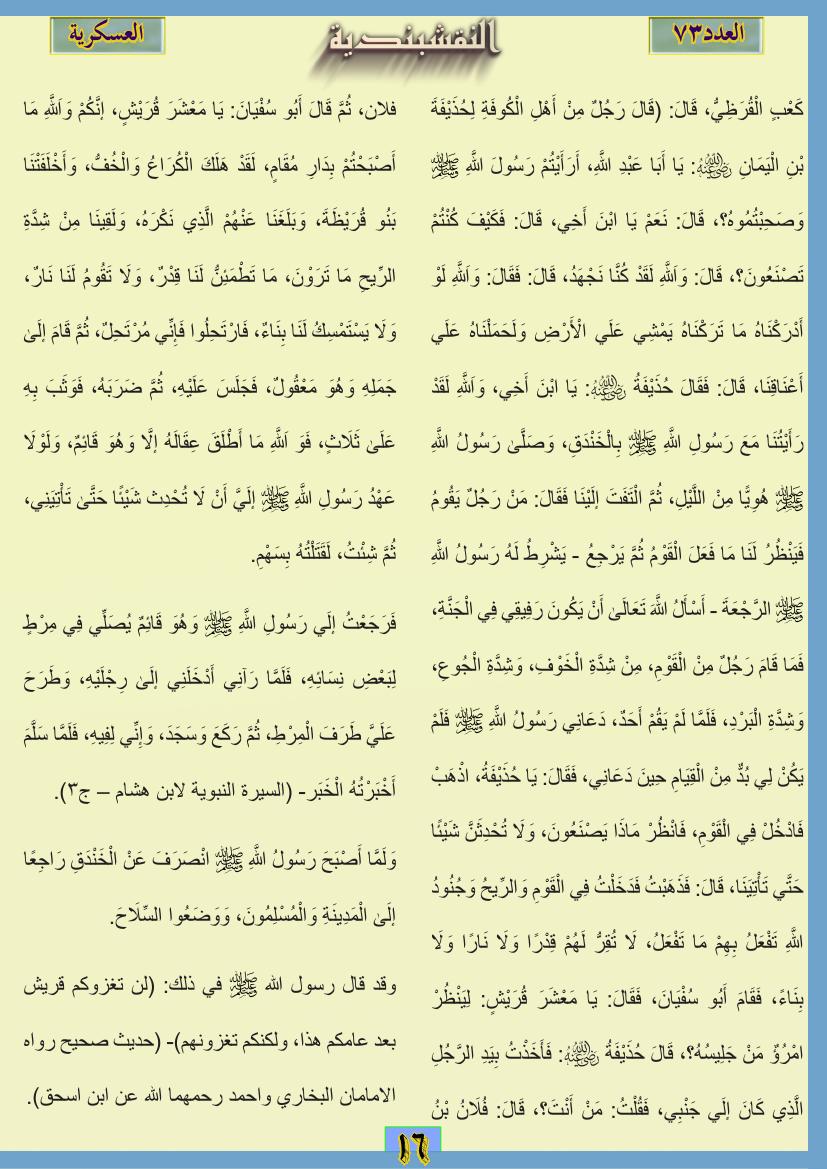 العدد٧٣
النقشبندية
العسكرية
كَعْبٍ الْقُرَظِيُّ، قَالَ: (قَالَ رَجُلٌ مِنْ أَهْلِ الْكُوفَةِ لِحُذَيْفَةَ
بْنِ الْيَمَانِ رضي الله عنه: يَا أَبَا عَبْدِ اللَّهِ، أَرَأَيْتُمْ رَسُولَ اللَّهِ ﷺ
وَصَحِبْتُمُوهُ؟، قَالَ: نَعَمْ يَا ابْنَ أَخِي، قَالَ: فَكَيْفَ كُنْتُمْ
تَصْنَعُونَ؟، قَالَ: وَاَللَّهِ لَقَدْ كُنَّا نَجْهَدُ، قَالَ: فَقَالَ: وَاَللَّهِ لَوْ
أَدْرَكْنَاهُ مَا تَرَكْنَاهُ يَمْشِي عَلَي الْأَرْضِ وَلَحَمَلْنَاهُ عَلَي
أَعْنَاقِنَا، قَالَ: فَقَالَ حُذَيْفَةُ رضي الله عنه: يَا ابْنَ أَخِي، وَاَللَّهِ لَقَدْ
رَأَيْتُنَا مَعَ رَسُولِ اللَّهِ ﷺ بِالْخَنْدَقِ، وَصَلَّىٰ رَسُولُ اللَّهِ
ﷺ هُوِيًّا مِنْ اللَّيْلِ، ثُمَّ الْتَفَتَ إلَيْنَا فَقَالَ: مَنْ رَجُلٌ يَقُومُ
فَيَنْظُرُ لَنَا مَا فَعَلَ الْقَوْمُ ثُمَّ يَرْجِعُ - يَشْرِطُ لَهُ رَسُولُ اللَّهِ
ﷺ الرَّجْعَةَ - أَسْأَلُ اللَّهَ تَعَالَىٰ أَنْ يَكُونَ رَفِيقِي فِي الْجَنَّةِ،
فَمَا قَامَ رَجُلٌ مِنْ الْقَوْمِ، مِنْ شِدَّةِ الْخَوْفِ، وَشِدَّةِ الْجُوعِ،
وَشِدَّةِ الْبَرْدِ، فَلَمَّا لَمْ يَقُمْ أَحَدٌ، دَعَانِي رَسُولُ اللَّهِ ﷺ فَلَمْ
يَكُنْ لِي بُدٌّ مِنْ الْقِيَامِ حِينَ دَعَانِي، فَقَالَ: يَا حُذَيْفَةُ، اذْهَبْ
فَادْخُلْ فِي الْقَوْمِ، فَانْظُرْ مَاذَا يَصْنَعُونَ، وَلَا تُحْدِثَنَّ شَيْئًا
حَتَّي تَأْتِيَنَا، قَالَ: فَذَهَبْتُ فَدَخَلْتُ فِي الْقَوْمِ وَالرِّيحُ وَجُنُودُ
اللَّهِ تَفْعَلُ بِهِمْ مَا تَفْعَلُ، لَا تُقِرُّ لَهُمْ قِدْرًا وَلَا نَارًا وَلَا
بِنَاءً، فَقَامَ أَبُو سُفْيَانَ، فَقَالَ: يَا مَعْشَرَ قُرَيْشٍ: لِيَنْظُرْ
امْرُؤٌ مَنْ جَلِيسُهُ؟، قَالَ حُذَيْفَةُ رضي الله عنه: فَأَخَذْتُ بِيَدِ الرَّجُلِ
الَّذِي كَانَ إلَي جَنْبِي، فَقُلْتُ: مَنْ أَنْتَ؟، قَالَ: فُلَانُ بْنُ
فلان، ثُمَّ قَالَ أَبُو سُفْيَانَ: يَا مَعْشَرَ قُرَيْشٍ، إنَّكُمْ وَاَللَّهِ مَا
أَصْبَحْتُمْ بِدَارِ مُقَامٍ، لَقَدْ هَلَكَ الْكُرَاعُ وَالْخُفُّ، وَأَخْلَفَتْنَا
بَنُو قُرَيْظَةَ، وَبَلَغَنَا عَنْهُمْ الَّذِي نَكْرَهُ، وَلَقِينَا مِنْ شِدَّةِ
الرِّيحِ مَا تَرَوْنَ، مَا تَطْمَئِنُّ لَنَا قِدْرٌ، وَلَا تَقُومُ لَنَا نَارٌ،
وَلَا يَسْتَمْسِكُ لَنَا بِنَاءٌ، فَارْتَحِلُوا فَإِنِّي مُرْتَحِلٌ، ثُمَّ قَامَ إلَىٰ
جَمَلِهِ وَهُوَ مَعْقُولٌ، فَجَلَسَ عَلَيْهِ، ثُمَّ ضَرَبَهُ، فَوَثَبَ بِهِ
عَلَىٰ ثَلَاثٍ، فَوَ اَللَّهِ مَا أَطْلَقَ عِقَالَهُ إلَّا وَهُوَ قَائِمٌ، وَلَوْلَا
عَهْدُ رَسُولِ اللَّهِ ﷺ إلَيَّ أَنْ لَا تُحْدِث شَيْئًا حَتَّىٰ تَأْتِيَنِي،
ثُمَّ شِئْتُ، لَقَتَلْتُهُ بِسَهْمِ.
فَرَجَعْتُ إلَي رَسُولِ اللَّهِ ﷺ وَهُوَ قَائِمٌ يُصَلِّي فِي مِرْطٍ
لِبَعْضِ نِسَائِهِ، فَلَمَّا رَآنِي أَدْخَلَنِي إلَىٰ رِجْلَيْهِ، وَطَرَحَ
عَلَيَّ طَرَفَ الْمِرْطِ، ثُمَّ رَكَعَ وَسَجَدَ، وَإِنِّي لِفِيهِ، فَلَمَّا سَلَّمَ
أَخْبَرْتُهُ الْخَبَر- (السيرة النبوية لابن هشام – ج٣).
وَلَمَّا أَصْبَحَ رَسُولُ اللَّهِ ﷺ انْصَرَفَ عَنْ الْخَنْدَقِ رَاجِعًا
إلَىٰ الْمَدِينَةِ وَالْمُسْلِمُونَ، وَوَضَعُوا السِّلَاحَ.
وقد قال رسول الله ﷺ في ذلك: (لن تغزوكم قريش
بعد عامكم هذا، ولكنكم تغزونهم)- (حديث صحيح رواه
الامامان البخاري واحمد رحمهما الله عن ابن اسحق).
١٦